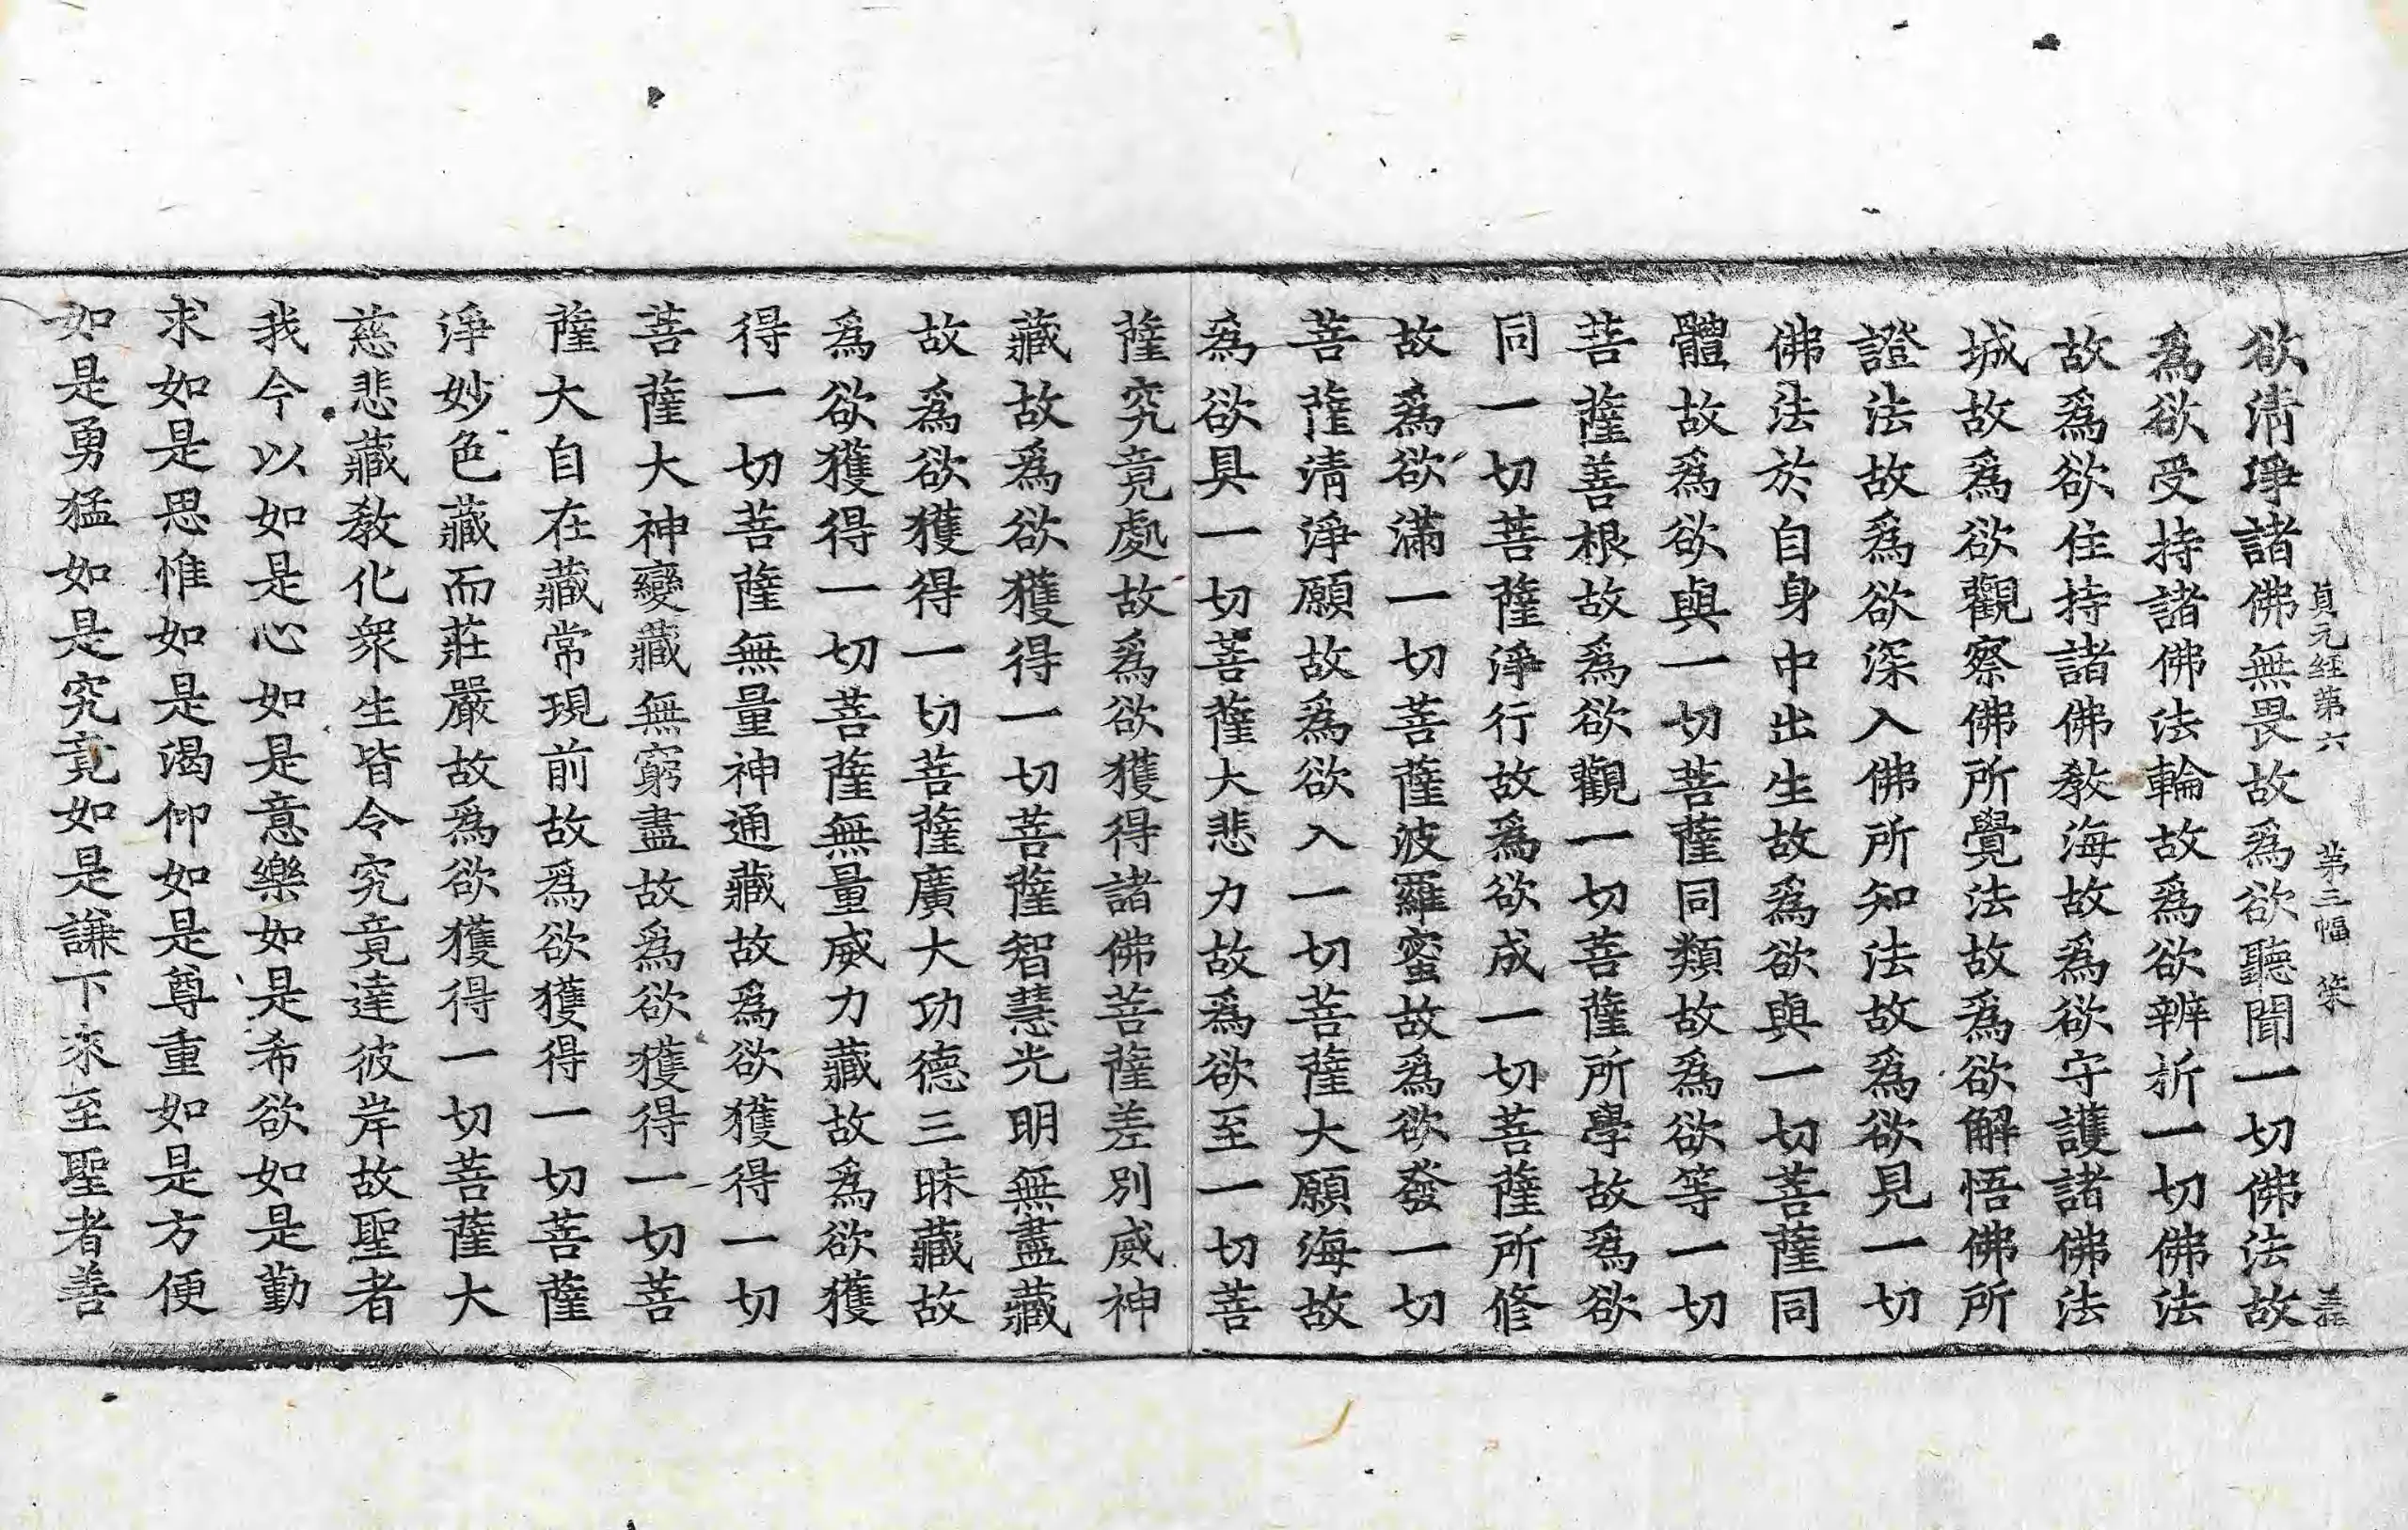 貞元経第六 第三幅 䇲
欲清淨諸佛無畏故爲欲聽聞一切佛法故
爲欲受持諸佛法輪故爲欲辨折一切佛法
故爲欲住持諸佛教海故爲欲守護諸佛法
城故爲欲觀察佛所覺法故爲欲解悟佛所
證法故爲欲深入佛所知法故爲欲見一切
佛法於自身中出生故爲欲與一切菩薩同
體故爲欲與一切菩薩同類故爲欲等一切
菩薩善根故爲欲觀一切菩薩所學故爲欲
同一切菩薩淨行故爲欲成一切菩薩所修
故爲欲滿一切菩薩波羅蜜故爲欲發一切
菩薩清淨願故爲欲入一切菩薩大願海故
爲欲具一切菩薩大悲力故爲欲至一切菩
薩究竟處故爲欲獲得諸佛菩薩差別威神
藏故爲欲獲得一切菩薩智慧光明無盡藏
故爲欲獲得一切菩薩廣大功德三昧藏故
爲欲獲得一切菩薩無量威力藏故爲欲獲
得一切菩薩無量神通藏故爲欲獲得一切
菩薩大神變藏無窮盡故爲欲獲得一切菩
薩大自在藏常現前故爲欲獲得一切菩薩
淨妙色藏而莊嚴故爲欲獲得一切菩薩大
慈悲藏教化衆生皆令究竟達彼岸故聖者
我今以如是心如是意樂如是希欲如是勤
求如是思惟如是渴仰如是尊重如是方便
如是勇猛如是究竟如是謙下來至聖者善